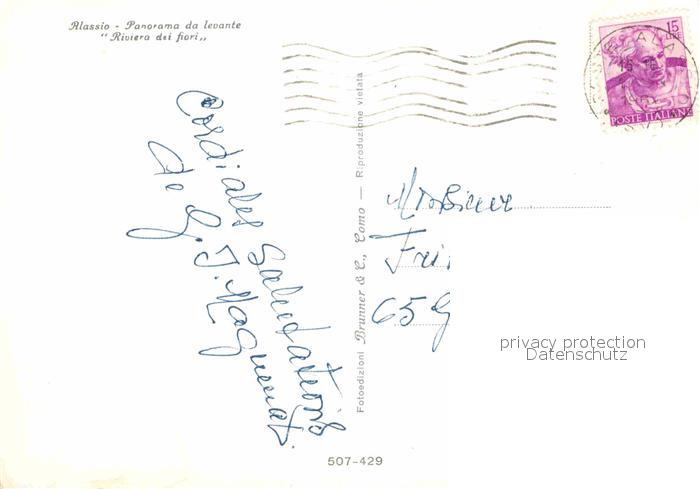 Alassio - Panorama da levante
"Riviera dei fiori„
15
LIRE
POSTE ITALIANE
Cordiales salutations
de G. J. Maguenat.
Fotoedizioni Brunner & C., Como — Riproduzione vietata
Monsieur
65 G
privacy protection
Datenschutz
507-429